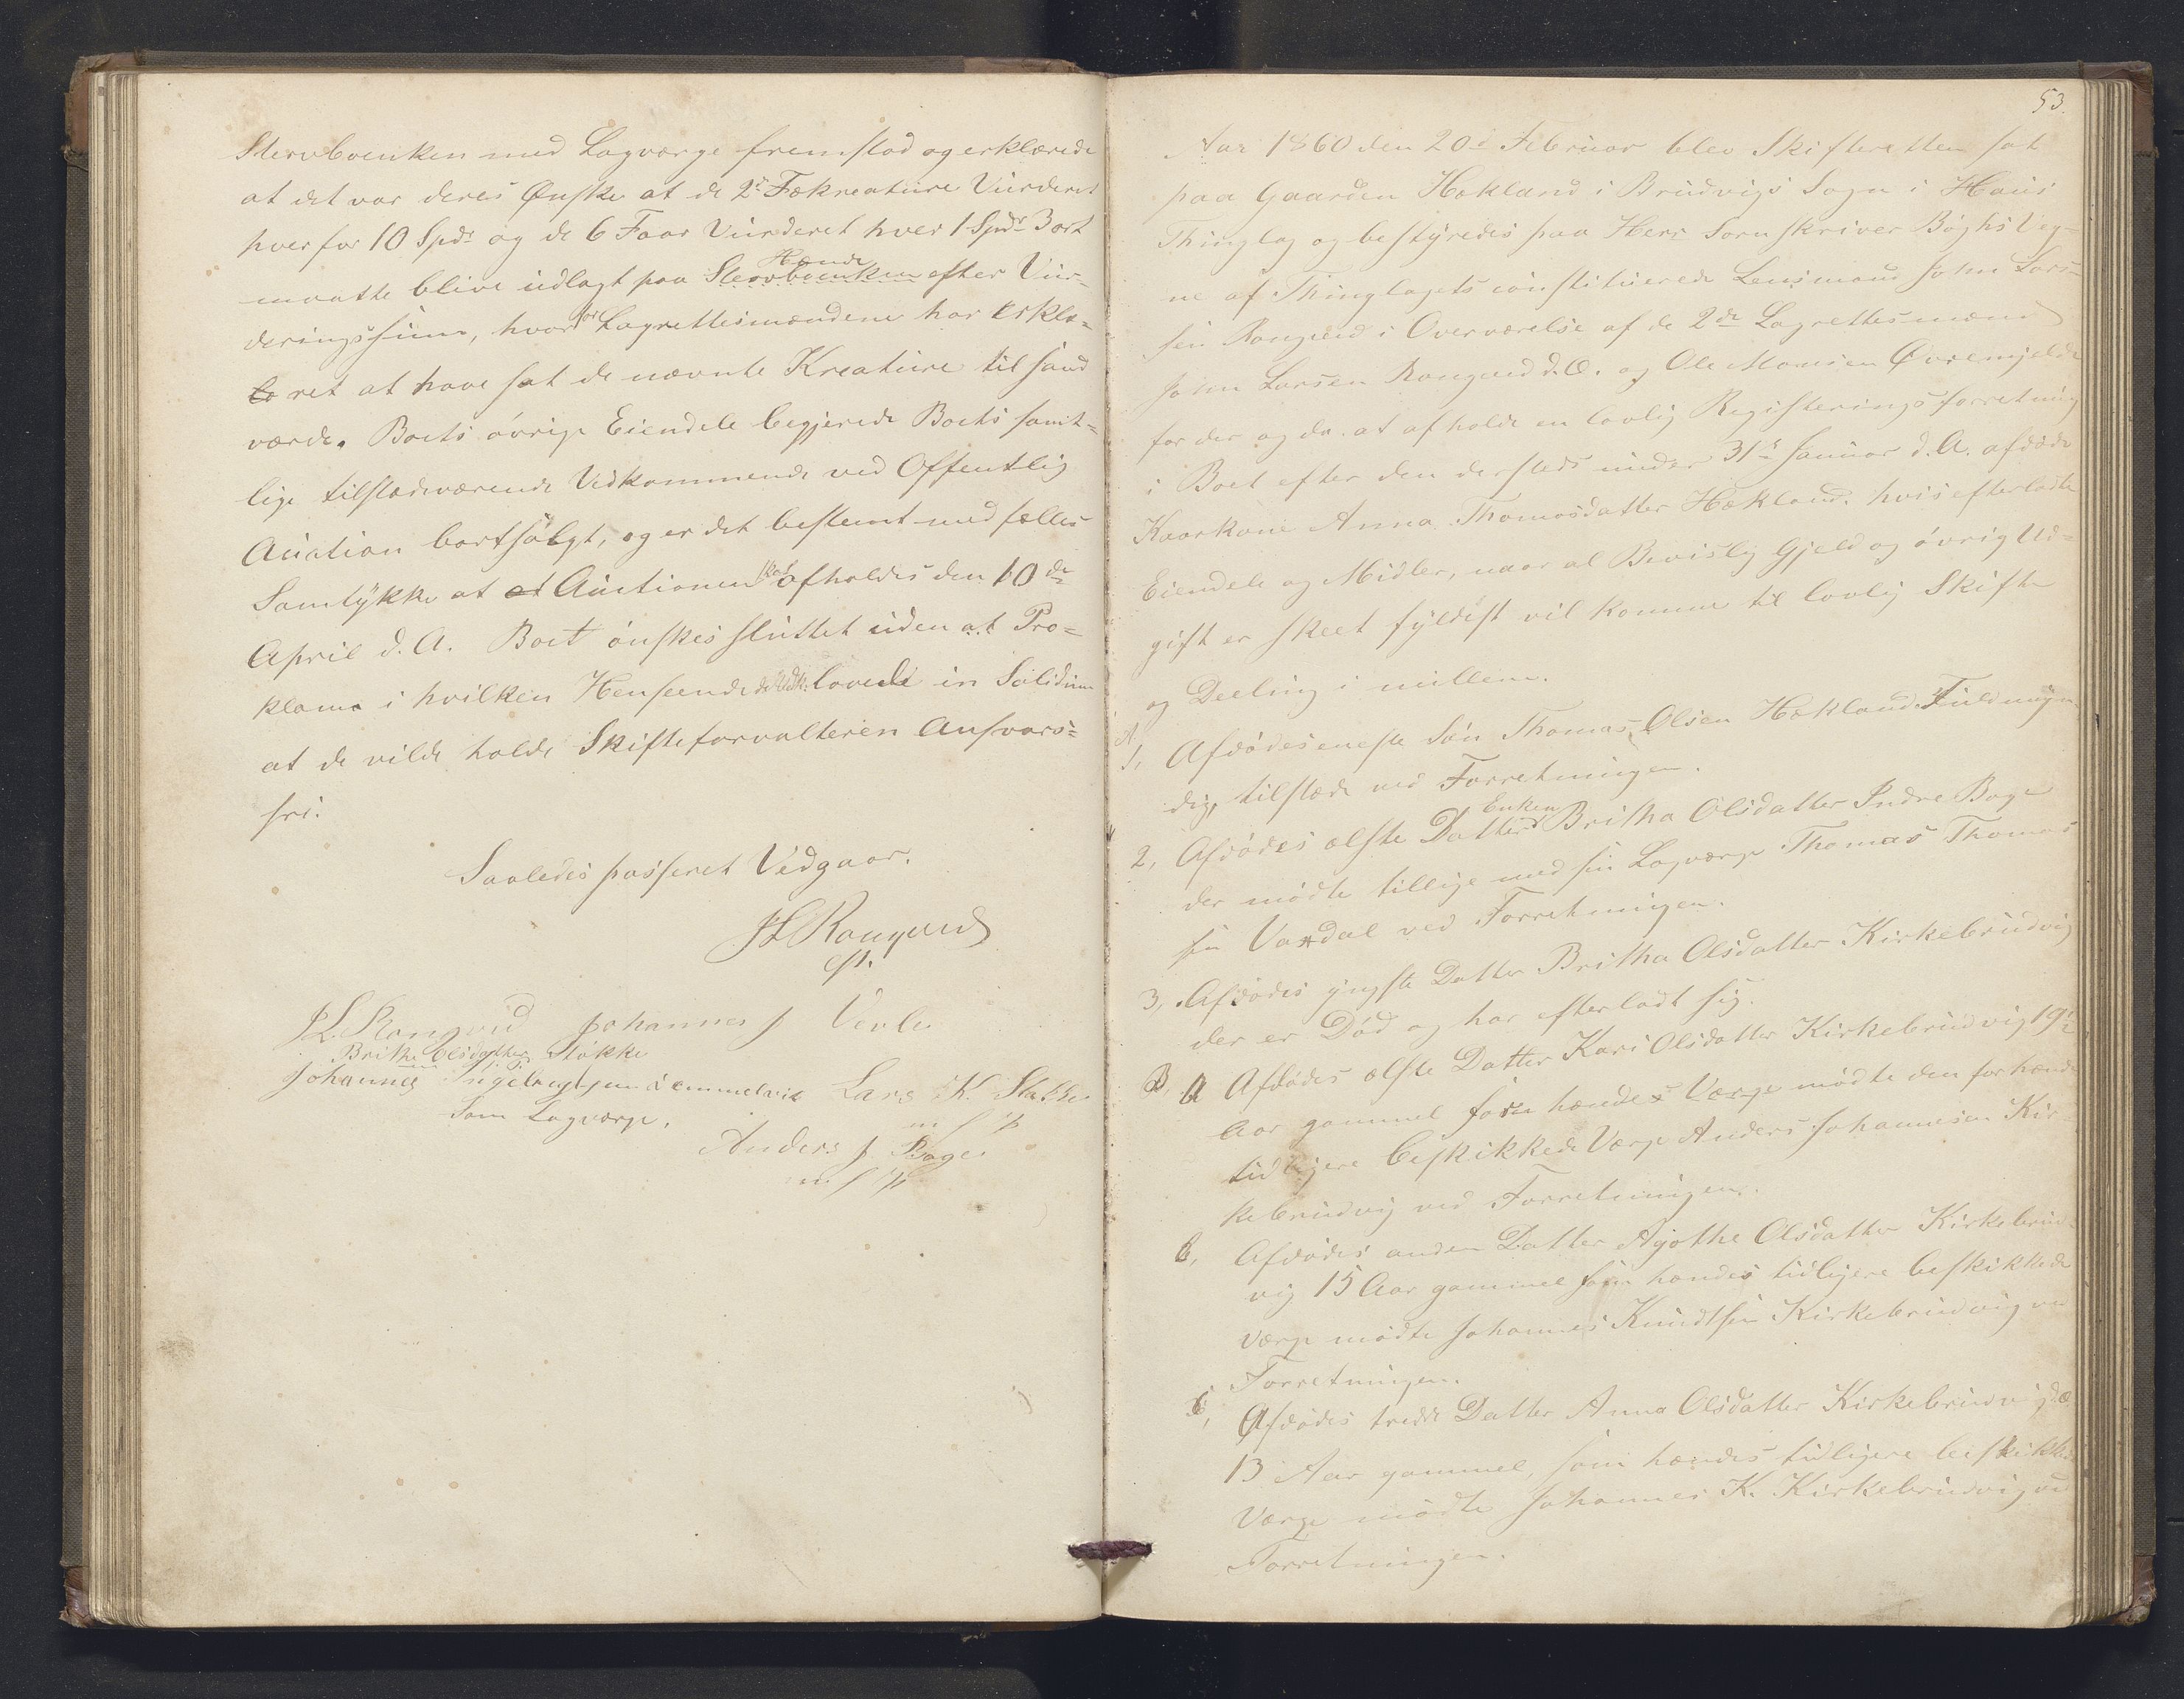 Stervboenken med Lagværge fremstod og erklærede
at det var deres Ønske at de 2de Fækreature Vurderet
hver for 10 Spdr og de 6 Faar Vurderet hver 1 Spdr 3 ort
Hænde
maatte blive udlagt paa Stervboenken efter Vur=
deringssum, hvorfor Lagrettesmændene har erklæ=
ret at have sat de nævnte Kreature til sand
værde. Boets øvrige Eiendele begjerede Boets samt=
lige tilstedeværende Vedkommende ved Offentlig
Auction bortsolgt, og er det bestemt med fælles
Samtykke at Auctionen skal afholdes den 10de
April d.A. Boet ønskes sluttet uden at Pro=
klama i hvilken Henseende de Vedk. lovede in Solidum
at de vilde holde Skifteforvalteren Ansvars=
fri.
Saaledes passeret Vedgaar.
JL Rongved
cst.
JL. Rongved Johannes J Veule
Brithe Olsdatter Støkke
m. f. P.
Johannes Ingebrigtsen Lars K. Stakke
Som Lagværge. m f P
Anders J. Boge
m f P
53.
Aar 1860 den 20de Februar blev Skifteretten sat
paa Gaarden Hokland i Brudvigs Sogn i Haus
Thinglag og bestyredes paa Herr Sorenskriver Bøghs Veg=
ne af Thinglagets constituerede Lensmand John Lars=
sen Rongved i Overværelse af de 2de Lagrettesmænd
John Larsen Rongved d.E. og Ole Monsen Øvremjelde
for der og da at afholde en lovlig Registeringsforretning
i Boet efter den dersteds under 31te Januar d.A. afdøde
Kaarkone Anna Thomasdatter Hokland. hvis efterladte
Eiendele og Midler, naar al Bevislig Gjeld og øvrig Ud=
gift er skeet fyldest vil komme til lovlig Skifte
og Deeling i mellem.
A.
1, Afdødes eneste Søn Thomas Olsen Hokland Fuldmyn
dig, tilstæde ved Forretningen.
Enken
2, Afdødes ælste Datter Britha Olsdatter Indre Boge
der mødte tillige med sin Lagværge Thomas Thomas
sen Vardal ved Forretningen.
3, Afdødes yngste Datter Britha Olsdatter Kirkebrudvig
der er Død og har efterladt sig.
B, a Afdødes ælste Datter Kari Olsdatter Kirkebrudvig 19½
Aar gammel for hændes Værge mødte den for hænde
tidligere beskikkede Værge Anders Johannesen Kir
kebrudvig ved Forretningen.
b, Afdødes anden Datter Agathe Olsdatter Kirkebrud
vig 15 Aar gammel som hændes tidligere beskikkede
Værge mødte Johannes Knudtsen Kirkebrudvig ve
Forretningen.
c, Afdødes tredde Datter Anna Olsdatter Kirkebrudvig
13 Aar gammel, som hændes tidligere beskikke
Værge mødte Johannes K. Kirkebrudvig ve
Forretningen.